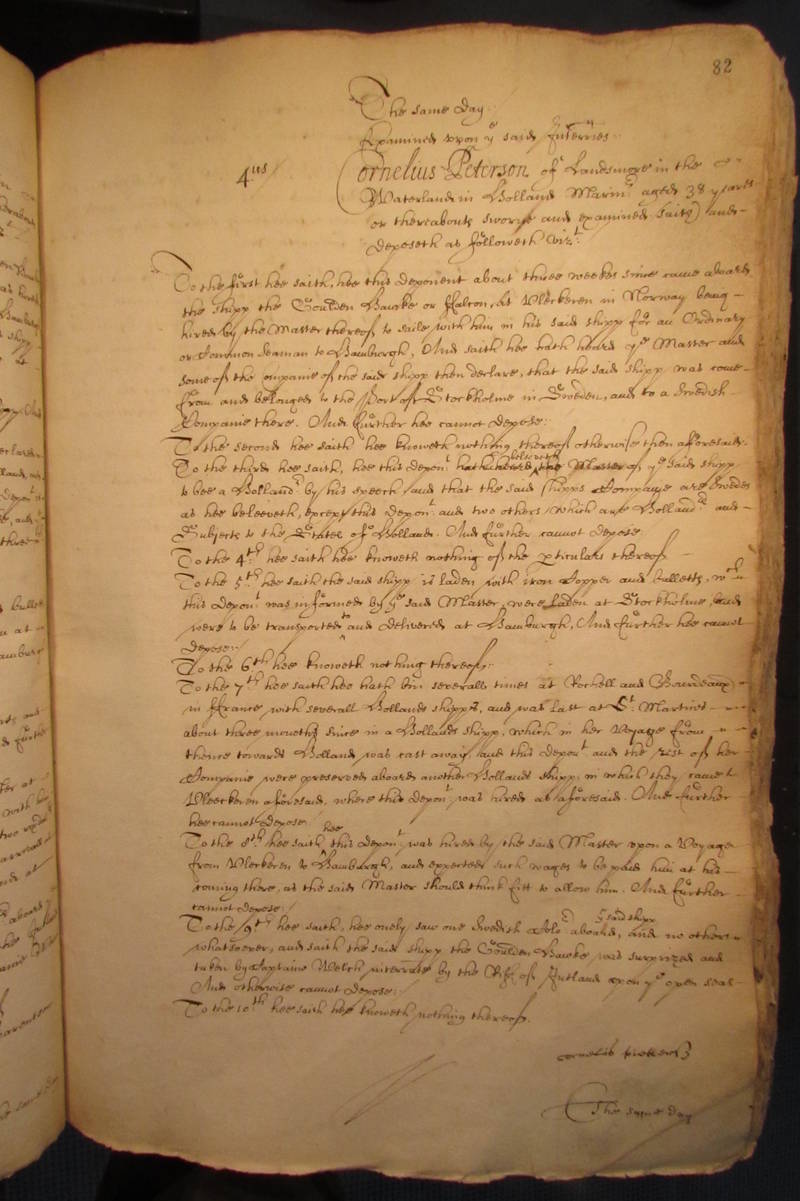 82
The same day:
Examined upon ye said Interries:
4us
Cornelius Peterson of Landsmore in the
Waterland in Holland Marinr aged 38 yeares
or thereabouts sworne and examined saith and
deposeth as followeth vizt.
To the first hee saith, hee this deponent about three weekes since came aboard
the shipp the Goulden Hawke or Falcon, at Vleckeren in Norway being
hired by the Master thereof to saile with him in his said shipp for an Ordinary
or Common seaman to Hamburgh, And saith hee hath heard ye Master and
some of the Companie of the said shipp then declare, that the said shipp was come
from and belonged to the Port of Stockholme in Sweden, and to a Swedish
Companie there. And further hee cannot depose:
To the second hee saith hee knoweth nothing thereof otherwise then aforesaid.
To the third hee saith, hee this depont beleeveth the Master of ye said shipp
to bee a Hollandr by his speech and that the said shipps Companye are Swedes
as hee beleeveth, except this depont and two others which are Hollandrs and
Subjects to the States of Holland. And further cannot depose
To the 4th hee saith hee knoweth nothing of the pticulars thereof
To the 5th hee saith the said shipp is laden with iron Copper and bulletts, wch
this depont was informed by ye said Master, were laden at Stockholme, and
were to be transported to and delivered at Hamburgh, And further hee cannot
depose:
To the 6th hee knoweth nothing thereof:
To the 7th hee saith hee hath bin severall times at Rochell and Bourdeaux
in France with severall Hollands shipps, and was last at St. Martins
about three moneths since in a Hollands shipp, which in her Voyage from
thence towards Holland was cast away, and this depont and the rest of her
Companie were preserved aboard another Hollands shipp, in which they came to
Vleeckeren aforesaid, where this depont was hired as aforesaid. And further
hee cannot depose
To the 8th hee saith hee this depont was hired by the said Master upon a Voyage
from Vleckeren to Hamburgh, and expected such wages to be paid him at his
coming there, as the said Master should think fitt to allow him. And further
cannot depose:
To the 9th hee saith, hee onely saw one Swedish aboard ye said shipp, and no other
whatsoever, and saith the said shipp the Goulden Hawke was surprized and
taken by Captaine Welch by the of Jutland upon ye open seas
And otherwise cannot depose:
To the 10th hee saith hee knoweth nothing thereof.
cornelis
The same day